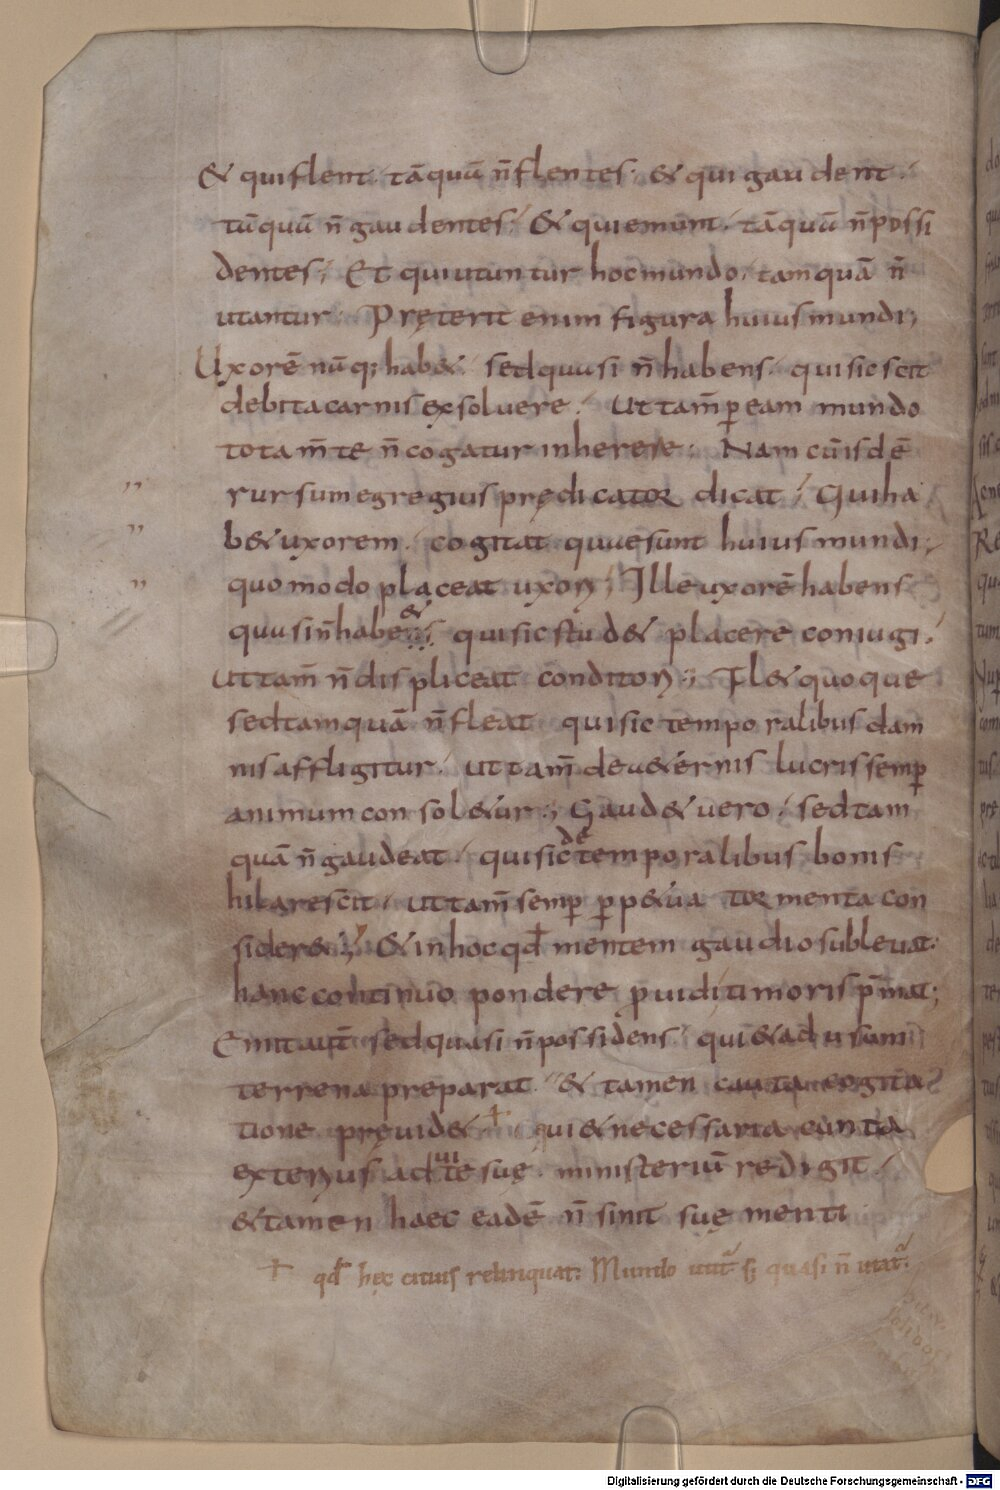 & qui flent· tāquā n̄ flentes· & qui gaudent·
tāquā n̄ gaudentes· & qui emunt· tāquā n̄ possi
dentes· Et qui utuntur hoc mundo· tamquā n̄
utantur· Pręterit enim figura huius mundi;
Uxorē nāq; hab&· sed quasi n̄ habens· qui sic scit
debita carnis exsoluere· Ut tam̄ p̱ eam mundo
tota m̄te n̄ cogatur inherere· Nam cū isdē
rursum egregius prędicator dicat· Qui ha
b& uxorem· cogitat quae sunt huius mundi·
quomodo placeat uxori; Ille uxorē habens
quasi n̄ hab&· qui sic stud& placere coniugi·
ut tam̄ n̄ displiceat conditori; Fl& quoque
sed tamquā n̄ fleat qui sic temporalibus dam
nis affligitur· ut tam̄ de a&ernis lucris semp̱
animum consol&ur; Gaud& uero· sed tam
quā n̄ gaudeat· qui sic de temporalibus bonis
hilarescit· ut tam̄ semp̱ p̱p&ua tormenta con
sider&; & in hoc qđ mentem gaudio subleuat·
hanc continuo pondere ꝓuidi timoris p̄mat;
Emit aut̄ sed quasi n̄ possidens· qui & ad usum
terrena preparat· & tamen cauta cogita
tione pręuid& qui & necessaria cuncta
exterius ad uitę suę· ministeriū redigit·
& tamen haec eadē n̄ sinit suę menti
qđ hęc citius relinquat: Mundo utit̄ s; quasi n̄ utat̄·
Digitalisierung gefördert durch die Deutsche Forschungsgemeinschaft - DFG